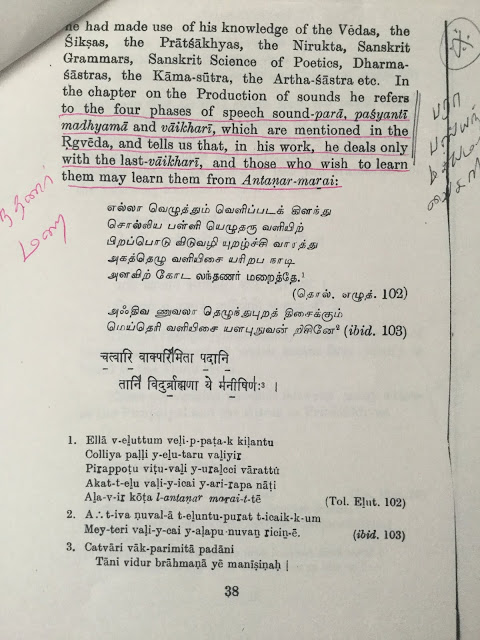 he had made use of his knowledge of the Vēdas, the
Śikṣas, the Prātśākhyas, the Nirukta, Sanskrit
Grammars, Sanskrit Science of Poetics, Dharma-
śāstras, the Kāma-sūtra, the Artha-śāstra etc. In
the chapter on the Production of sounds he refers
to the four phases of speech sound-parā, paśyantī
madhyamā and vāikharī, which are mentioned in the
Ṛgvēda, and tells us that, in his work, he deals only
with the last-vāikharī, and those who wish to learn
them may learn them from Antaṇar-maṟai:
எல்லா வெழுத்தும் வெளிப்படக் கிளந்து
சொல்லிய பள்ளி யெழுதரு வளியிற்
பிறப்பொடு விடுவழி யுறழ்ச்சி வாரத்து
அகத்தெழு வளியிசை யரிறப நாடி
அளவிற் கோட லந்தணர் மறைத்தே.¹
(தொல். எழுத். 102)
அஃதிவ ணுவலா தெழுந்துபுறத் திசைக்கும்
மெய்தெரி வளியிசை யளபுநுவன் றிசினே² (ibid. 103)
च॒त्वारि॒ वाक्परि॑मिता प॒दानि॒
तानि॑ विदुर्ब्राह्म॒णा ये म॑नी॒षिणः॑³ ।
1. Ellā v-eḻuttum veḷi-p-paṭa-k kiḷantu
Colliya paḷḷi y-eḻu-taru vaḷiyiṟ
Piṟappoṭu viṭu-vaḻi y-uṟaḻcci vārattŭ
Akat-t-eḻu vaḷi-y-icai y-ari-ṟapa nāṭi
Aḷa-v-iṟ kōṭa l-antaṇar maṟai-t-tē (Tol. Eḻut. 102)
2. A∴t-iva ṇuval-ā t-eḻuntu-puṟat t-icaik-k-um
Mey-teri vaḷi-y-cai y-aḷapu nuvaṉ ṟiciṉ-ē. (ibid. 103)
3. Catvāri vāk-parimitā padāni
Tāni vidur brāhmaṇā yē manīṣiṇaḥ |
38
மறை
பரா